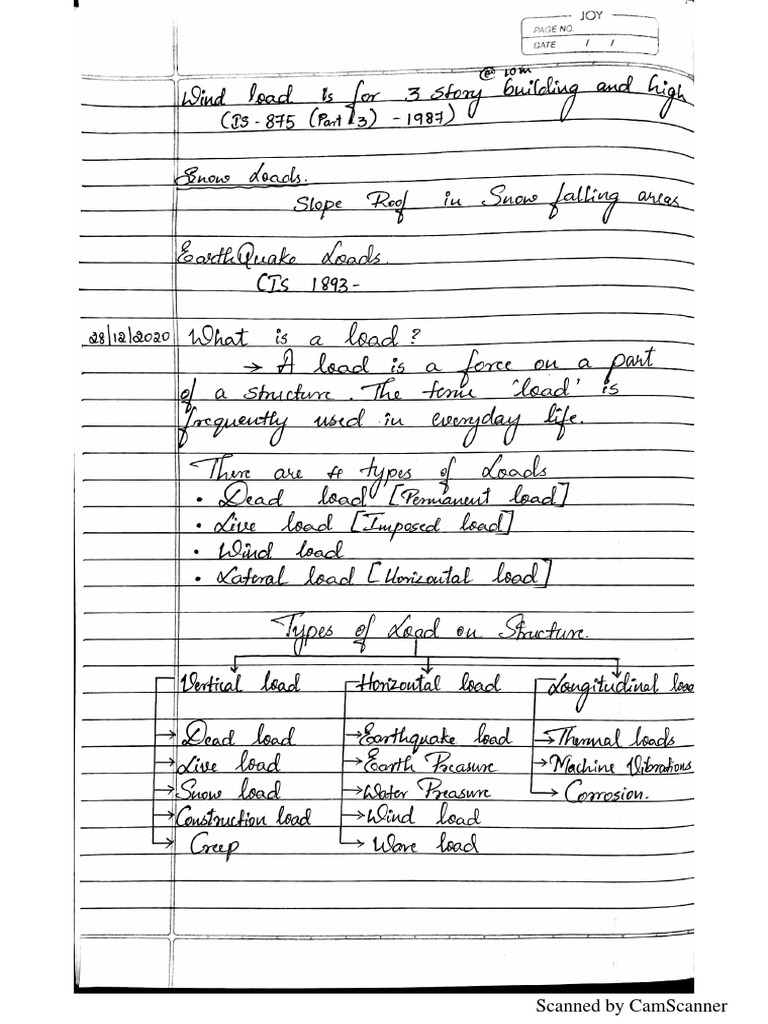 JOY
PAGE NO.
DATE / /
@ 10m
Wind load is for 3 story building and high
(IS - 875 (Part 3) - 1987)
Snow Loads.
Slope Roof in Snow falling areas
EarthQuake Loads.
(IS 1893 -
28/12/2020 What is a load?
→ A load is a force on a part
of a structure. The term 'load' is
frequently used in everyday life.
There are 4 types of Loads
• Dead load [Permanent load]
• Live load [Imposed load]
• Wind load
• Lateral load [Horizontal load]
Types of Load on Structure.
Vertical load Horizontal load Longitudinal load
Dead load Earthquake load Thermal loads
Live load Earth Preasure Machine Vibrations
Snow load Water Preasure Corrosion.
Construction load Wind load
Creep Wave load
Scanned by CamScanner